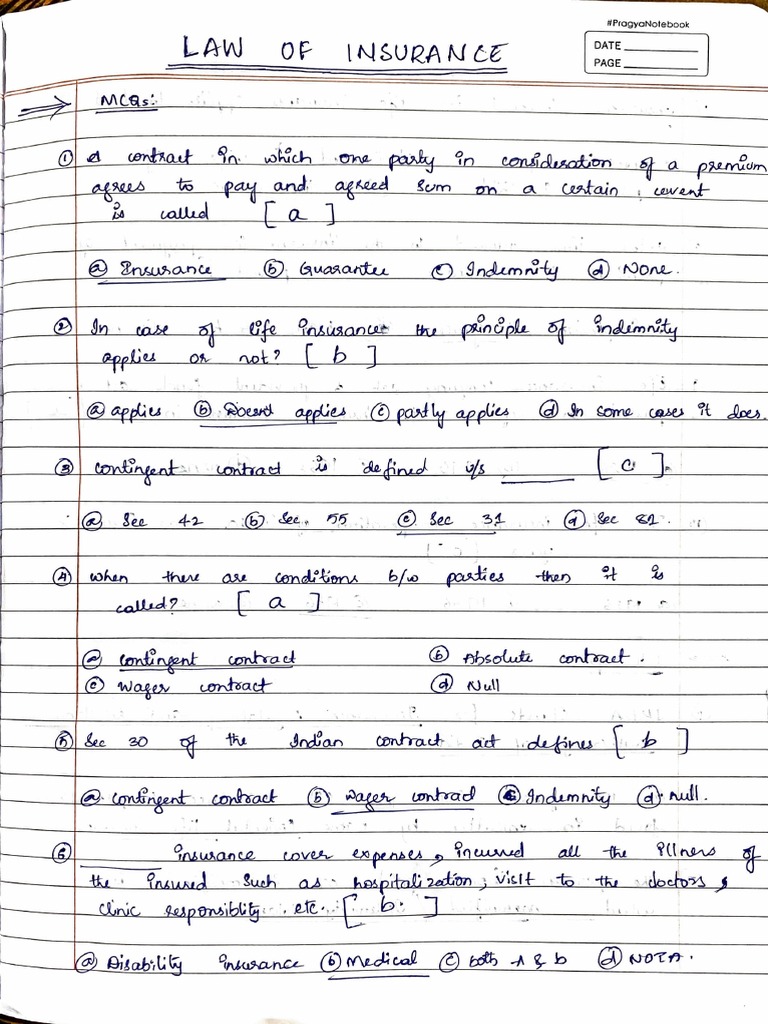 #PragyaNotebook
LAW OF INSURANCE
DATE
PAGE
MCQs:
① A contract in which one party in consideration of a premium
agrees to pay and agreed sum on a certain event
is called [ a ]
ⓐ Insurance ⓑ Guarantee ⓒ Indemnity ⓓ None.
② In case of life insurance the principle of indemnity
applies or not? [ b ]
ⓐ applies ⓑ Doesnt applies ⓒ partly applies ⓓ In some cases it does.
③ contingent contract is defined u/s ______ [ c ].
ⓐ Sec 42 ⓑ Sec. 55 ⓒ Sec 31 ⓓ Sec 81.
④ when there are conditions b/w parties then it is
called? [ a ]
ⓐ contingent contract ⓑ Absolute contract.
ⓒ wager contract ⓓ Null
⑤ Sec 30 of the Indian contract act defines [ b ]
ⓐ contingent contract ⓑ wager contract ⓒ Indemnity ⓓ null.
⑥ ______ insurance cover expenses, incurred all the illness of
the insured such as hospitalization, visit to the doctors,
clinic responsiblity etc. [ b. ]
ⓐ Disability insurance ⓑ Medical ⓒ both A & b ⓓ NOTA.